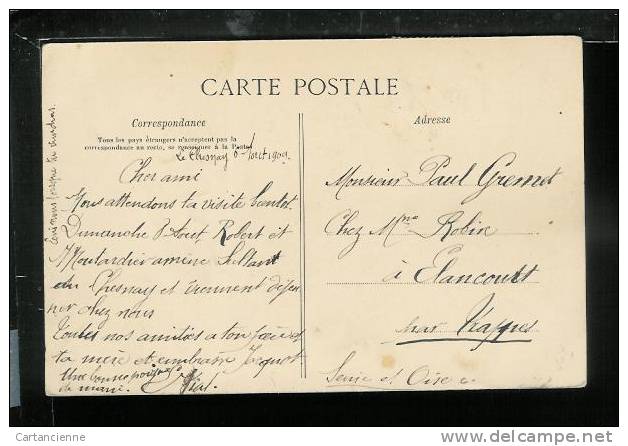 CARTE POSTALE
Correspondance
Tous les pays étrangers n'acceptent pas la
correspondance au recto, se renseigner à la Poste
Le Chesnay 6 Aout 1909
Cher ami
Nous attendons ta visite bientot.
Dimanche 8 Aout Robert et
Moutardier amène
du Chesnay et viennent déjeu
ner chez nous
Toutes nos amitiés a ton père et
ta mère et embrasse Jacquot
Une bonne poignée
de main.
Adresse
Monsieur Paul Gremet
Chez Mme Robin
à Elancourt
par Trappes
Seine et Oise
Cartancienne
http://www.delcampe.net